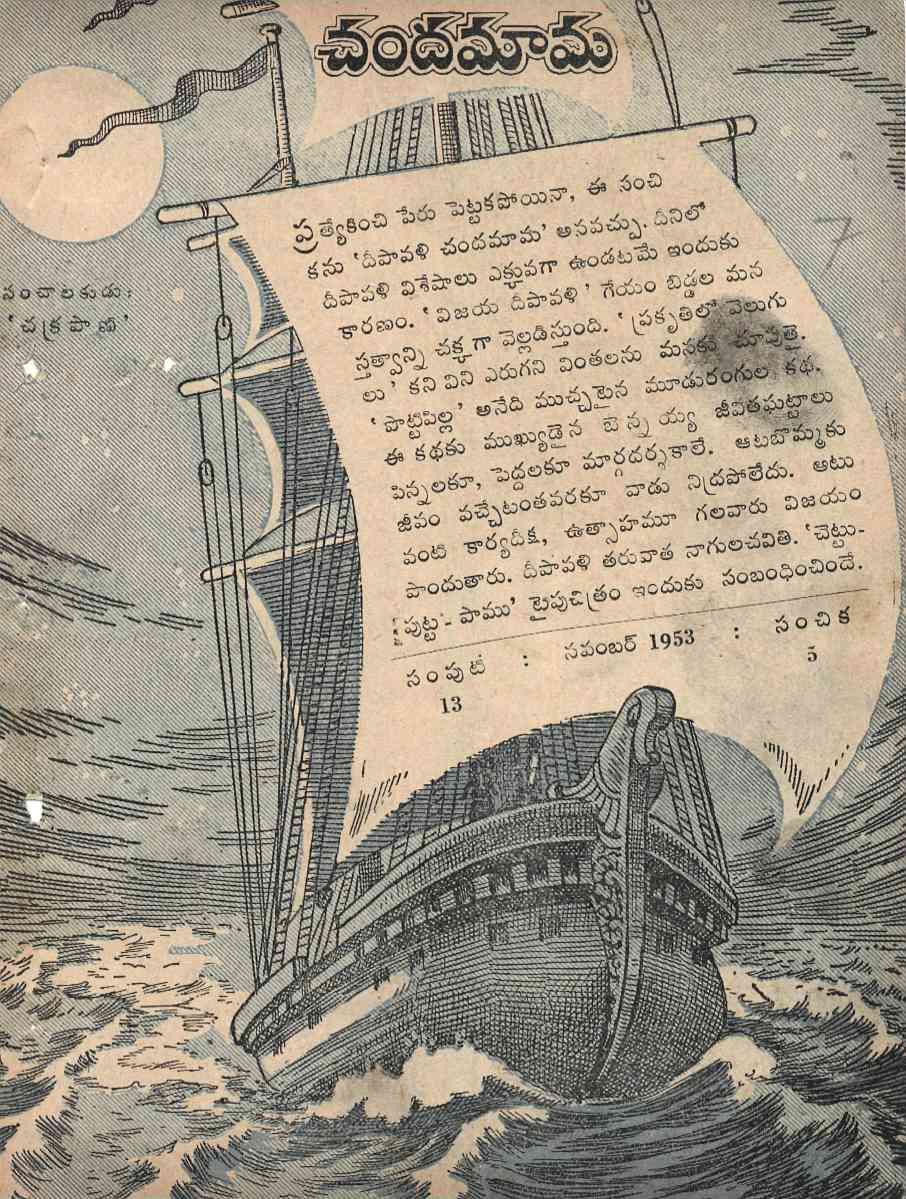 చందమామ
సంచాలకుడు:
'చక్రపాణి'
ప్రత్యేకించి పేరు పెట్టకపోయినా, ఈ సంచి
కను 'దీపావళి చందమామ' అనవచ్చు. దీనిలో
దీపావళి విశేషాలు ఎక్కువగా ఉండటమే ఇందుకు
కారణం. 'విజయ దీపావళి' గేయం బిడ్డల మన
స్తత్వాన్ని చక్కగా వెల్లడిస్తుంది. 'ప్రకృతిలో వెలుగు
లు' కని విని ఎరుగని వింతలను మనకు చూపుతై.
'పొట్టిపిల్ల' అనేది ముచ్చటైన మూడురంగుల కథ.
ఈ కథకు ముఖ్యుడైన బెన్నయ్య జీవితఘట్టాలు
పిన్నలకూ, పెద్దలకూ మార్గదర్శకాలే. ఆటబొమ్మకు
జీవం వచ్చేటంతవరకూ వాడు నిద్రపోలేదు. అటు
వంటి కార్యదీక్ష, ఉత్సాహమూ గలవారు విజయం
పొందుతారు. దీపావళి తరువాత నాగులచవితి. 'చెట్టు-
పుట్ట-పాము' టైపుచిత్రం ఇందుకు సంబంధించిందే.
సంపుటి : నవంబర్ 1953 : సంచిక
13 5